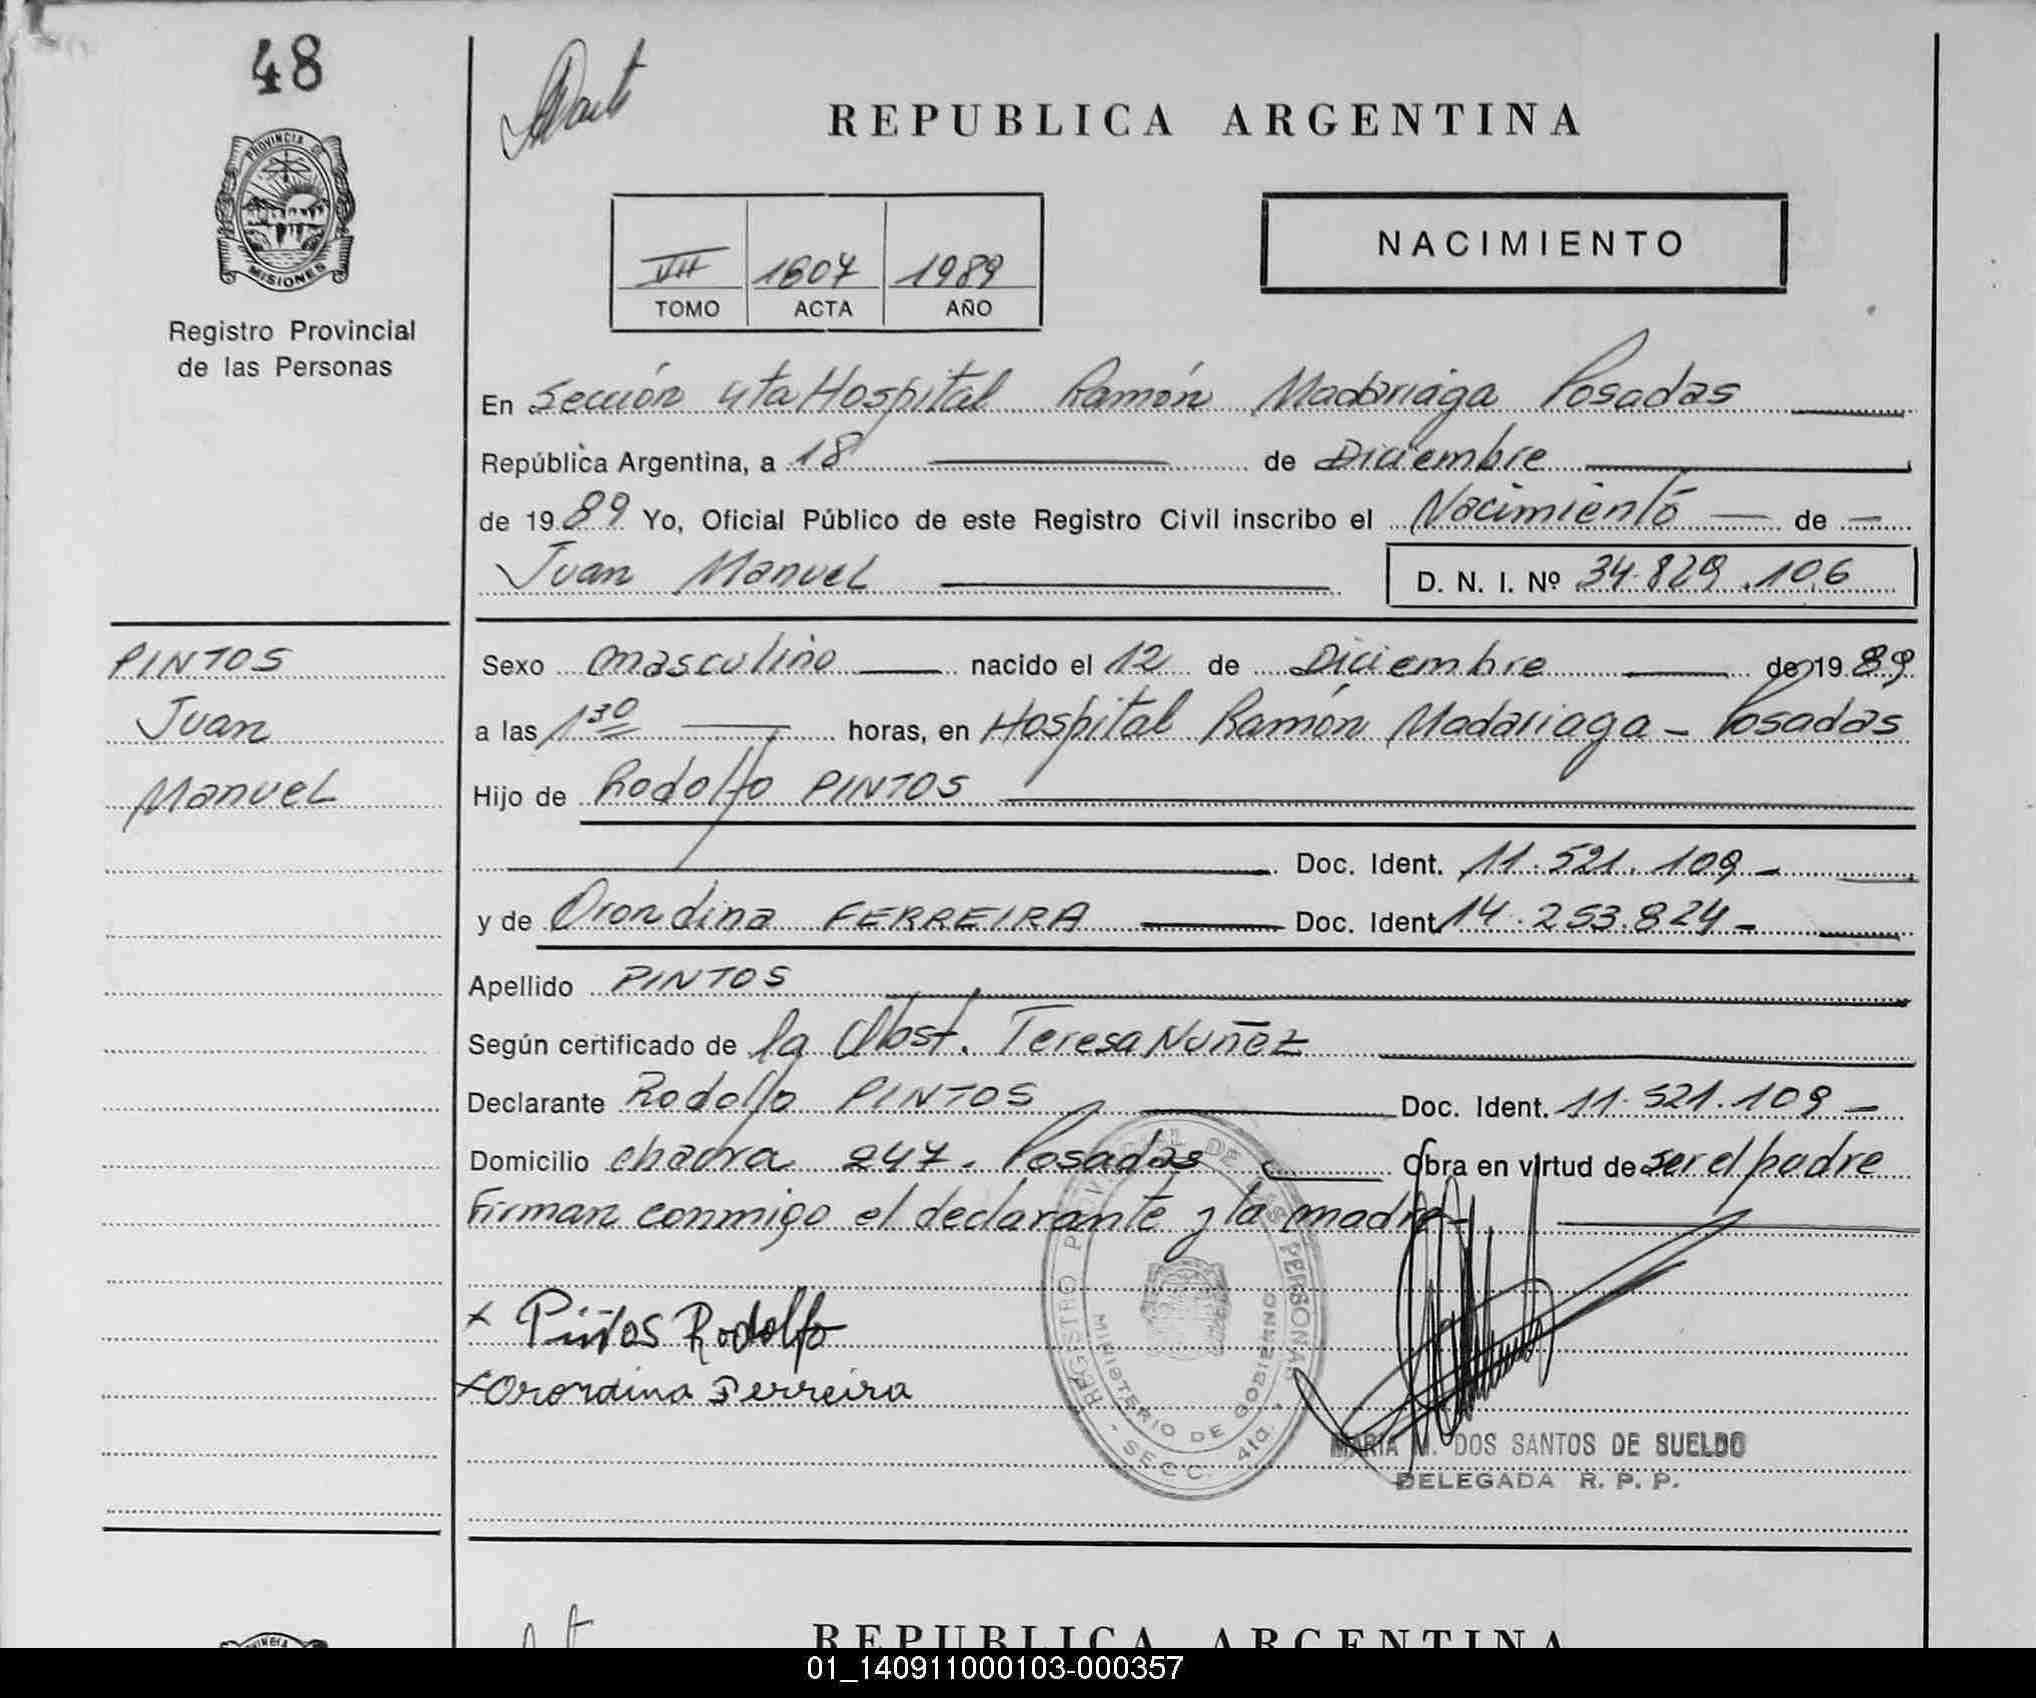 48
REPUBLICA ARGENTINA
PROVINCIA DE
MISIONES
Registro Provincial
de las Personas
NACIMIENTO
VII 1607 1989
TOMO ACTA AÑO
En Sección 4ta Hospital Ramón Madariaga Posadas
República Argentina, a 18 de Diciembre
de 1989 Yo, Oficial Público de este Registro Civil inscribo el Nacimiento de
Juan Manuel D. N. I. Nº 34.829.106
PINTOS
Juan
Manuel
Sexo masculino nacido el 12 de Diciembre de 1989
a las 1 30 horas, en Hospital Ramón Madariaga - Posadas
Hijo de Rodolfo PINTOS
Doc. Ident. 11.521.109-
y de Orondina FERREIRA Doc. Ident. 14.253.824-
Apellido PINTOS
Según certificado de la Obst. Teresa Nuñez
Declarante Rodolfo PINTOS Doc. Ident. 11.521.109-
Domicilio chacra 247. Posadas Obra en virtud de ser el padre
Firman conmigo el declarante y la madre-
x Pintos Rodolfo
x Orondina Ferreira
REGISTRO PROVINCIAL DE LAS PERSONAS
MINISTERIO DE GOBIERNO
- SECC. 4ta. -
MARIA M. DOS SANTOS DE SUELDO
DELEGADA R. P. P.
REPUBLICA ARGENTINA
01_140911000103-000357